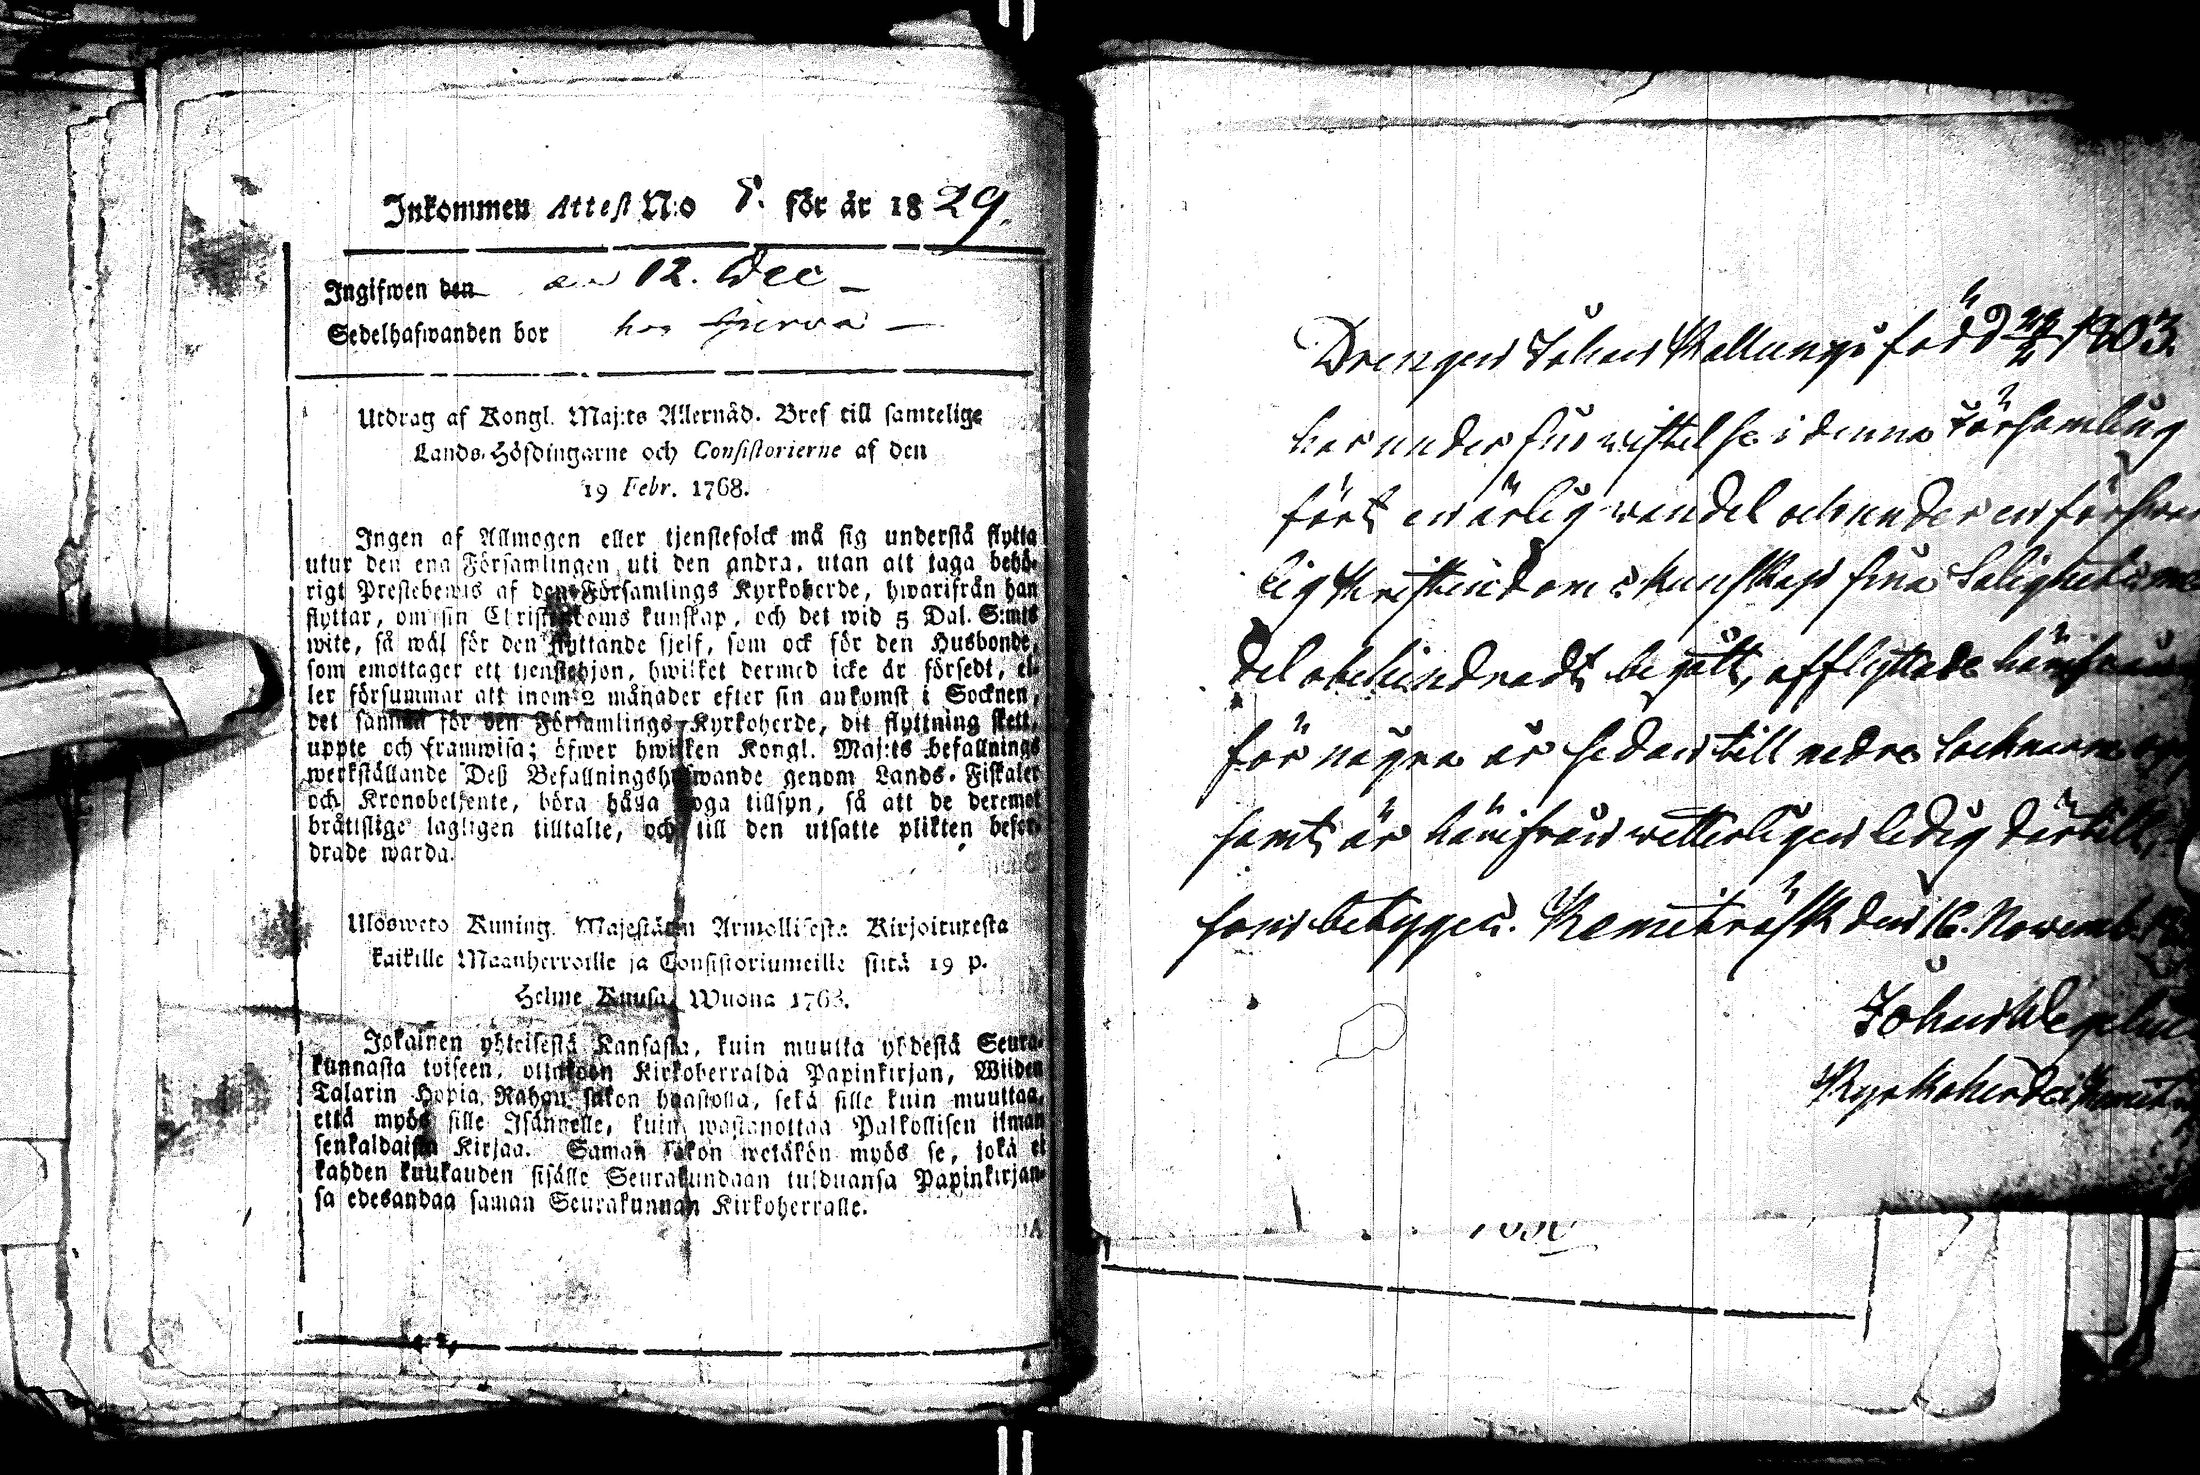 Inkommen Attest N:o 8. för år 1829.
Ingifwen den den 12. Dec
Sedelhafwanden bor hos
Utdrag af Kongl. Maj:ts Allernåd. Bref till samtelige
Lands-Höfdingarne och Consistorierne af den
19 Febr. 1768.
Ingen af Allmogen eller tjenstefolck må sig understå flytta
utur den ena Församlingen uti den andra, utan att taga behö-
rigt Prestebewis af den Församlings Kyrkoherde, hwarifrån han
flyttar, om sin Christendoms kunskap, och det wid 5 Dal. S:mts
wite, så wäl för den flyttande sjelf, som ock för den Husbonde,
som emottager ett tjenstehjon, hwilket dermed icke är försedt, el-
ler försummar att inom 2 månader efter sin ankomst i Socknen,
det samma för den Församlings Kyrkoherde, dit flyttning skett,
uppte och framwisa; öfwer hwilken Kongl. Maj:ts befallnings
werkställande Deß Befallningshafwande genom Lands-Fiskaler
och Kronobetjente, böra hafwa noga tillsyn, så att de deremot
bråttslige lagligen tilltalte, och till den utsatte plikten befor-
drade warda.
Ulosweto Kuning. Majestätin Armollisesta Kirjoituxesta
kaikille Maanherroille ja Consistoriumeille siitä 19 p.
Helme Kuusa Wuona 1768.
Jokainen yhteisestä Kansasta, kuin muutta yhdestä Seura-
kunnasta toiseen, ottakoon Kirkoherralda Papinkirjan, Wiiden
Talarin Hopia Rahan sakon haastolla, sekä sille kuin muuttaa,
että myös sille Isännelle, kuin wastanottaa Palkollisen ilman
senkaldaista Kirjaa. Saman sakon wetäkön myös se, joka ei
kahden kuukauden sisälle Seurakundaan tulduansa Papinkirjan-
sa edesandaa saman Seurakunnan Kirkoherralle.
Drengen Johan född 1803.
har under sin wistelse i denna Församling
fört en ärlig wandel och under en
lig Kristendoms Kunskap sina Salighets me
del obehindradt begått, afflyttade härifrån
för några år sedan till nedre Socknarne
samt är härifrån wetterligen ledig dertill,
som betygas. Kemiträsk den 16. Novemb.
Johan Wegelius
Kyrkoherde i Kemiträsk